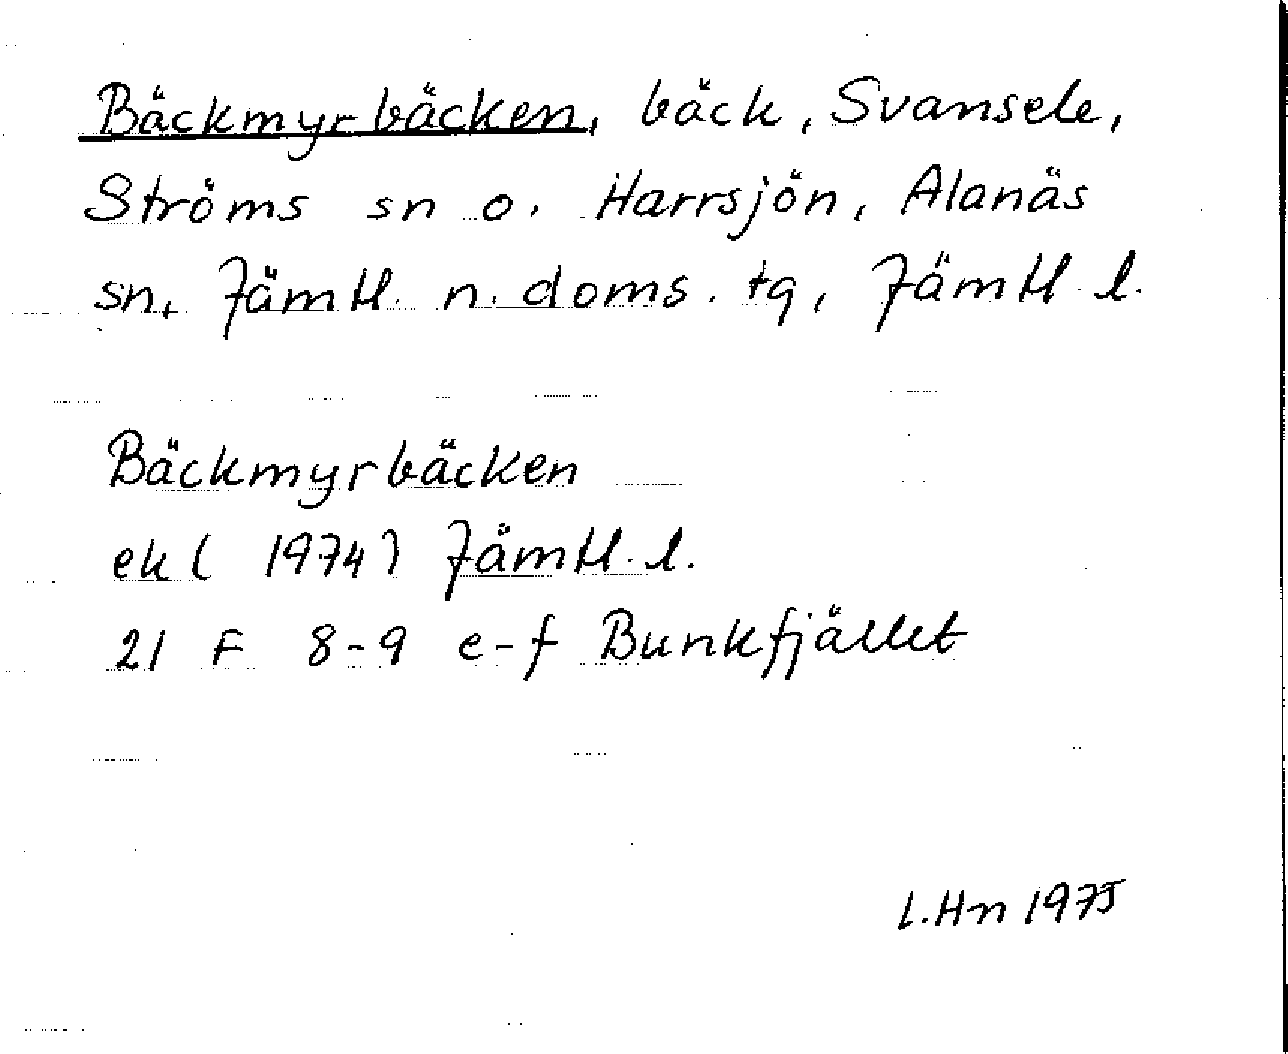 Bäckmyrbäcken, bäck, Svansele,
Ströms sn o. Harrsjön, Alanäs
sn, Jämtl. n. doms. tg, Jämtl. l.
Bäckmyrbäcken
ek (1974) Jämtl. l.
21 F 8-9 e-f Bunkfjället
L.Hn 1975